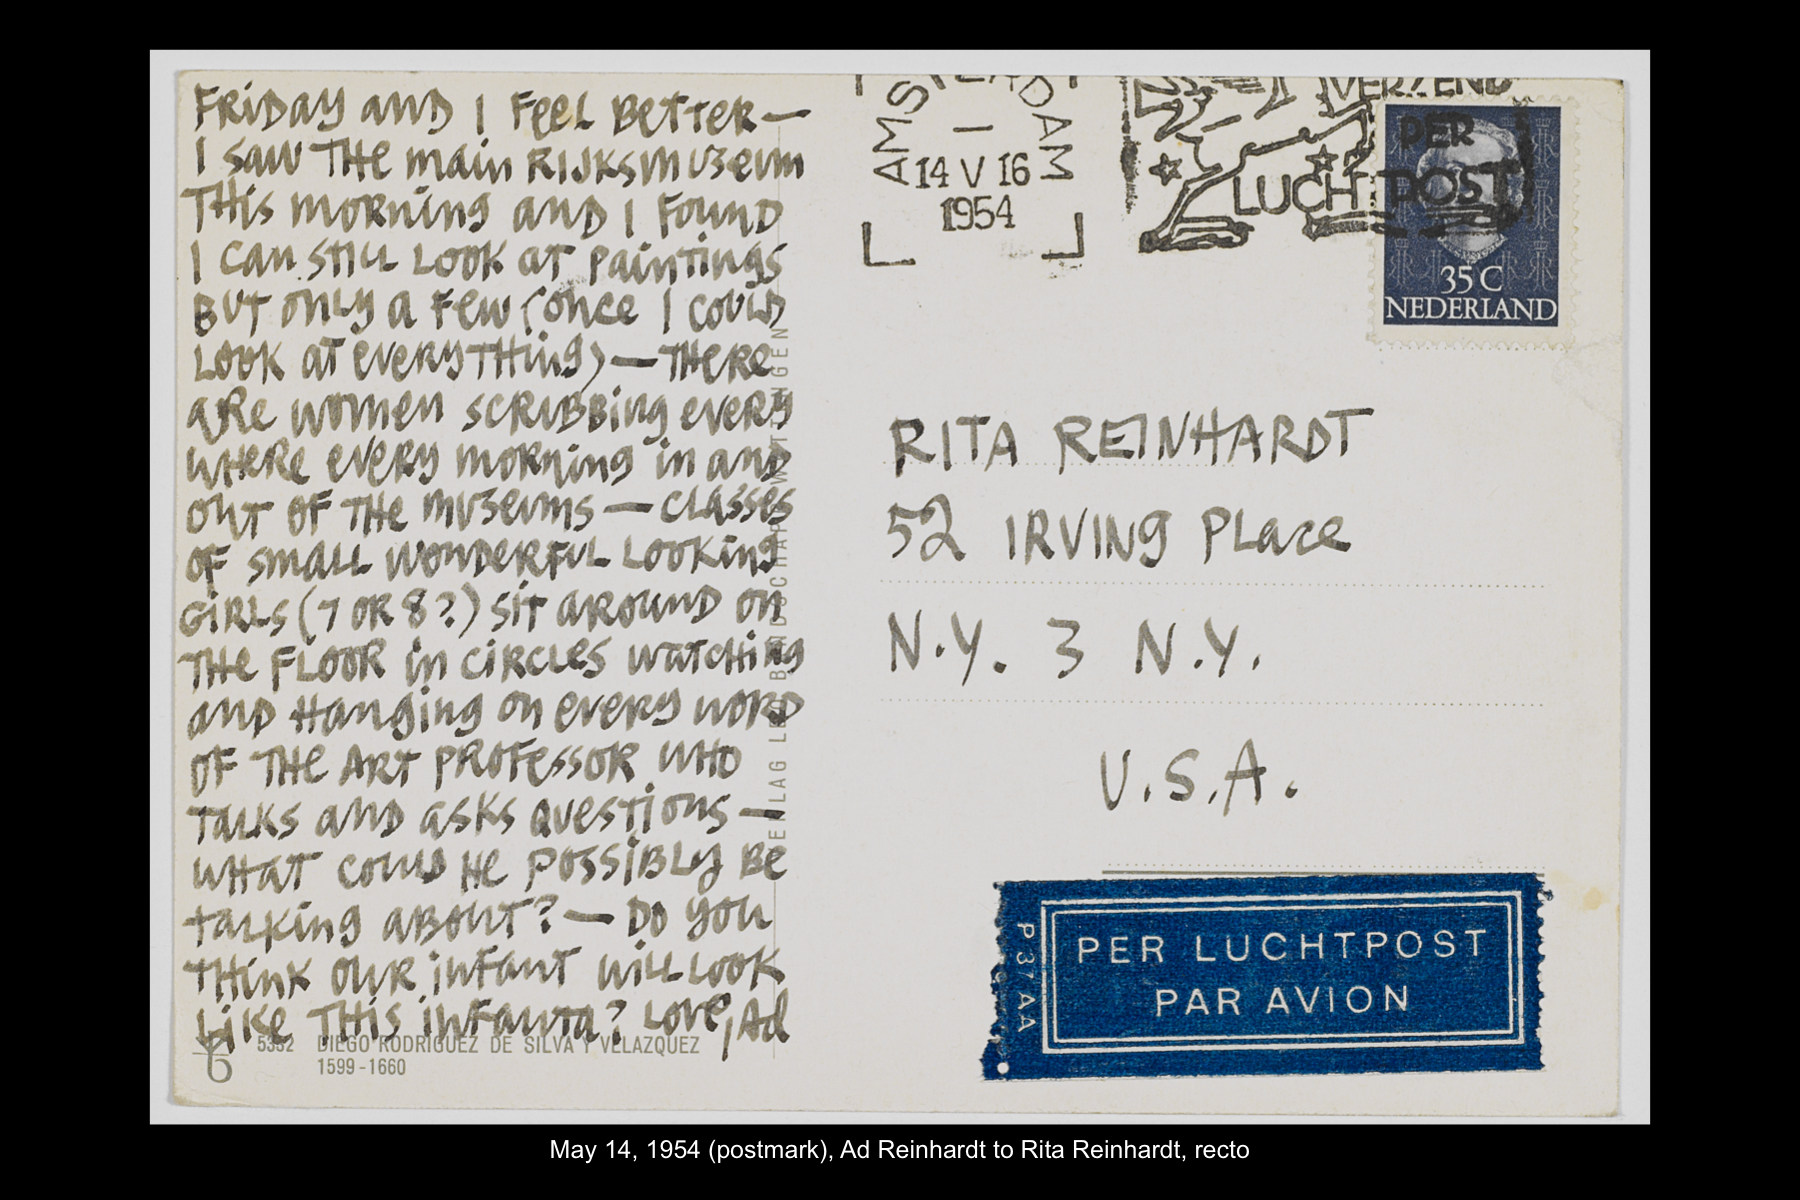 FRIDAY AND I FEEL BETTER —
I SAW THE MAIN RIJKSMUZEUM
THIS MORNING AND I FOUND
I CAN STILL LOOK AT PAINTINGS
BUT ONLY A FEW (ONCE I COULD
LOOK AT EVERYTHING) — THERE
ARE WOMEN SCRUBBING EVERY
WHERE EVERY MORNING IN AND
OUT OF THE MUZEUMS — CLASSES
OF SMALL WONDERFUL LOOKING
GIRLS (7 OR 8?) SIT AROUND ON
THE FLOOR IN CIRCLES WATCHING
AND HANGING ON EVERY WORD
OF THE ART PROFESSOR WHO
TALKS AND ASKS QUESTIONS —
WHAT COULD HE POSSIBLY BE
TALKING ABOUT? — DO YOU
THINK OUR INFANT WILL LOOK
LIKE THIS INFANTA? LOVE, Ad
5332 DIEGO RODRIGUEZ DE SILVA Y VELAZQUEZ
1599-1660
14 V 16
1954
PER
LUCHTPOST
35 C
NEDERLAND
RITA REINHARDT
52 IRVING PLACE
N.Y. 3 N.Y.
U.S.A.
P 37 AA
PER LUCHTPOST
PAR AVION
May 14, 1954 (postmark), Ad Reinhardt to Rita Reinhardt, recto